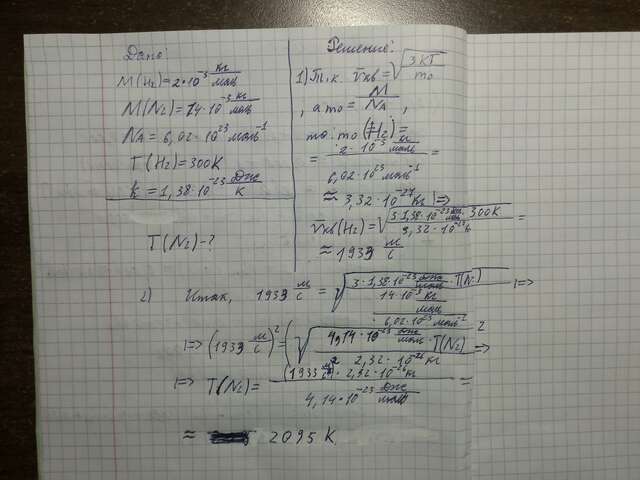 Дано:
M(H₂)=2·10⁻³ кг/моль
M(N₂)=14·10⁻³ кг/моль
Nᴀ=6,02·10²³ моль⁻¹
T(H₂)=300K
k=1,38·10⁻²³ Дж/К
T(N₂)-?
Решение:
1) Т.к. v̄кв=√(3kT/m₀)
, а m₀=M/Nᴀ,
то: m₀(H₂)=
=(2·10⁻³ кг/моль)/(6,02·10²³ моль⁻¹)=
≈3,32·10⁻²⁷ кг |=>
v̄кв(H₂)=√(3·1,38·10⁻²³ ·300K/3,32·10⁻²⁷)=
≈1933 м/с
2) Итак, 1933 м/с=√(3·1,38·10⁻²³ Дж/моль·T(N₂)/(14·10⁻³ кг/моль/6,02·10²³ моль⁻¹)) |=>
|=>(1933 м/с)²=(√(4,14·10⁻²³ Дж/моль·T(N₂)/2,32·10⁻²⁶ кг))² =>
|=> T(N₂)=((1933 м/с)²·2,32·10⁻²⁶ кг)/(4,14·10⁻²³ Дж/моль)=
≈ 2095 K